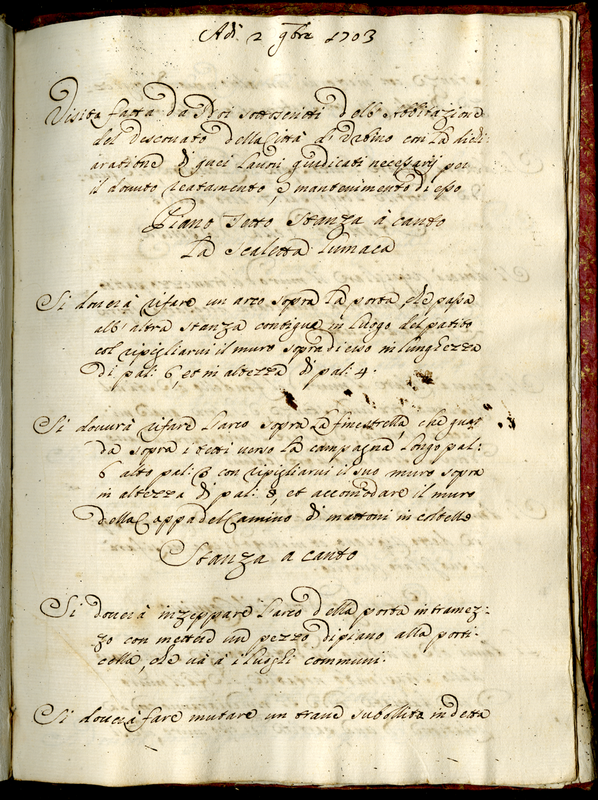 Adi 2 9bre 1703
Visita fatta da Noi sottoscritti dell'Abbitazione
del Vescovato della Città di Urbino con la dichi-
aratione di quei lavori giudicati necessarij per
il dovuto reatamento, e mantenimento di esso
Piano sotto stanza à canto
La scaletta lumaca
Si doverà rifare un arco sopra la porta, che passa
all'altra stanza contigua in luogo del patito
col ripigliarvi il muro sopra di esso in lunghezza
di pal: 6, et in altezza di pal: 4.
Si dovvrà rifare l'arco sopra la finestrella, che guar
da sopra i tetti verso la campagna longo pal:
6 alto pal: 3 con ripigliarvi il suo muro sopra
in altezza di pal: 8, et accomodare il muro
della Cappa del Camino di mattoni in coltello
Stanza a canto
Si doverà inzeppare l'arco della porta intramez-
zo con metterci un pezzo di piano alla porti-
cella, che và à i luoghi communi.
Si doverà fare mutare un trave subollito in detta